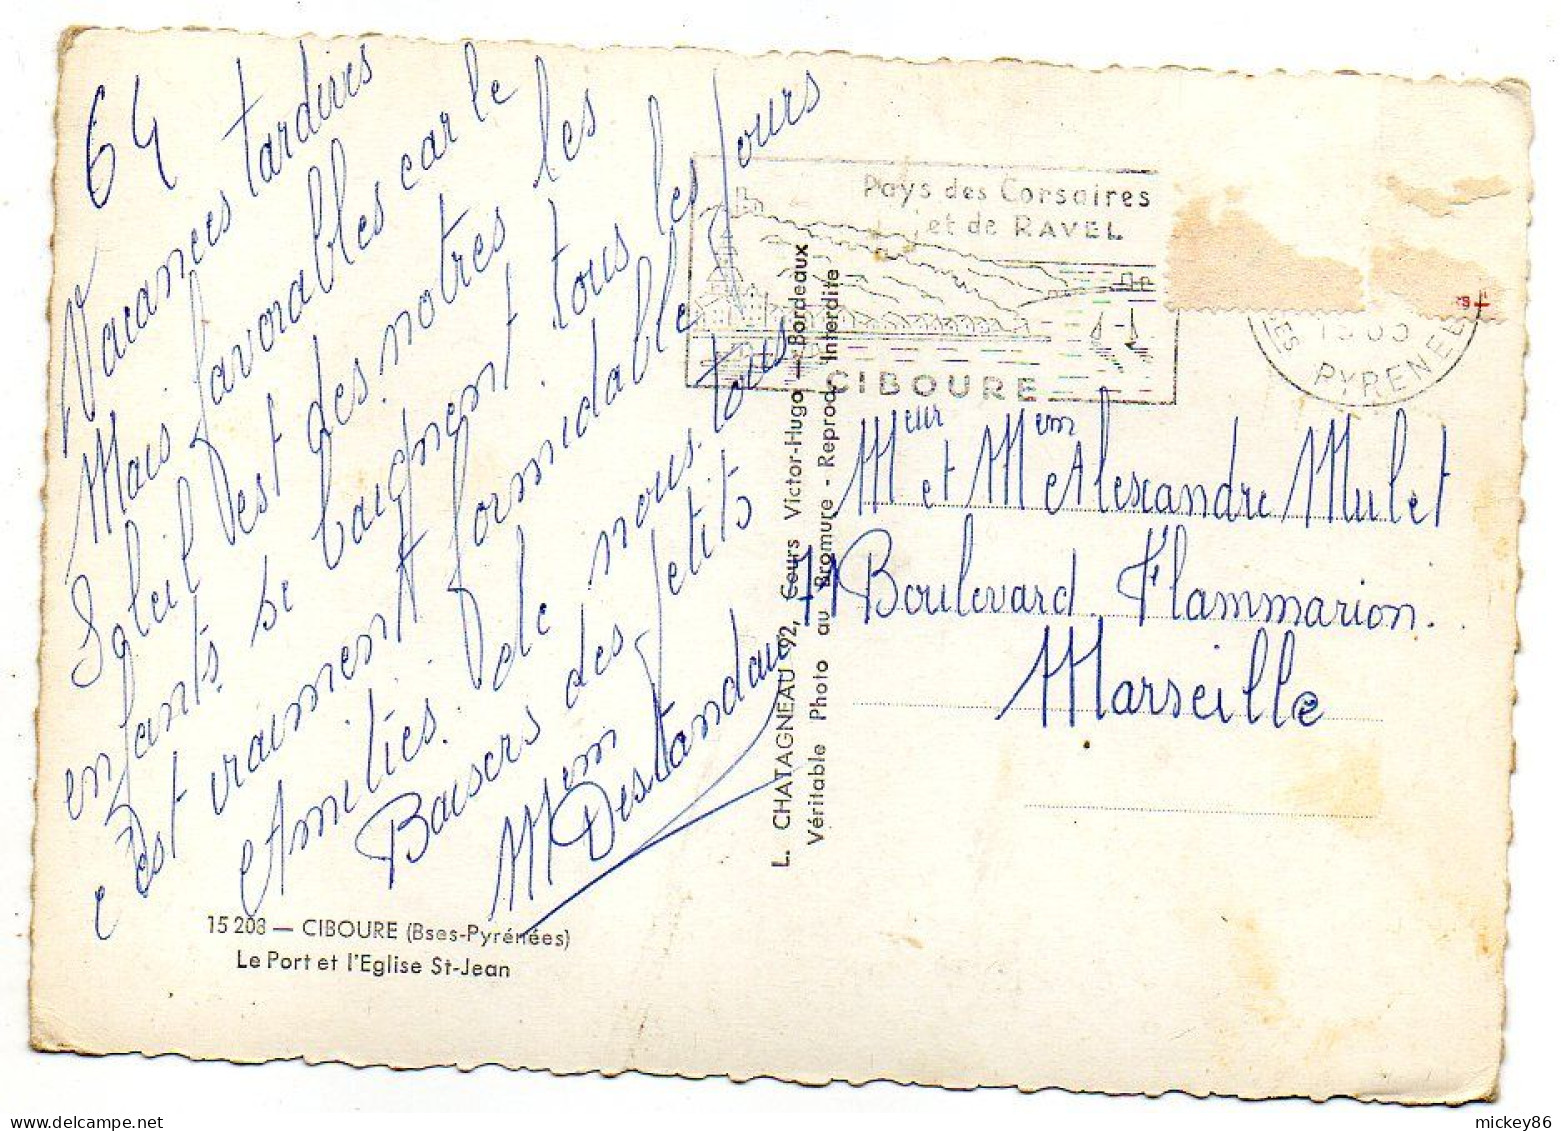 64
Vacances tardives
Mais favorables car le
Soleil est des notres les
enfants se baignent tous les jours
c'est vraiment formidable
Amitiés de nous tous
Baisers des petits
Mm Destandau
15 208 — CIBOURE (Bses-Pyrénées)
Le Port et l'Eglise St-Jean
L. CHATAGNEAU 92, Cours Victor-Hugo — Bordeaux
Véritable Photo au Bromure - Reprod. Interdite
Pays des Corsaires
et de RAVEL
CIBOURE
PYRENEES
Meur et Mme Alexandre Mulet
71 Boulevard Flammarion.
Marseille
mickey86